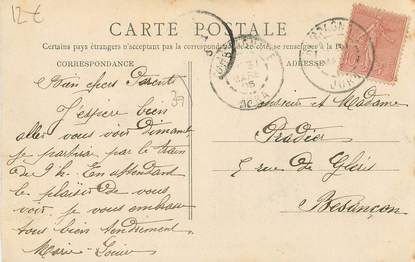 12 €
CARTE POSTALE
Certains pays étrangers n'acceptant pas la correspondance de ce côté, se renseigner à la
CORRESPONDANCE
ADRESSE
Bien chers Parents
J'espère bien
aller vous voir Dimanche
je partirai par le train
de 9 h. En attendant
le plaisir de vous
voir je vous embrasse
tous bien tendrement.
Marie-Louise
39
31
MARS
05
JURA
JURA
Monsieur et Madame
Pradier
5 rue de Glères
Besançon